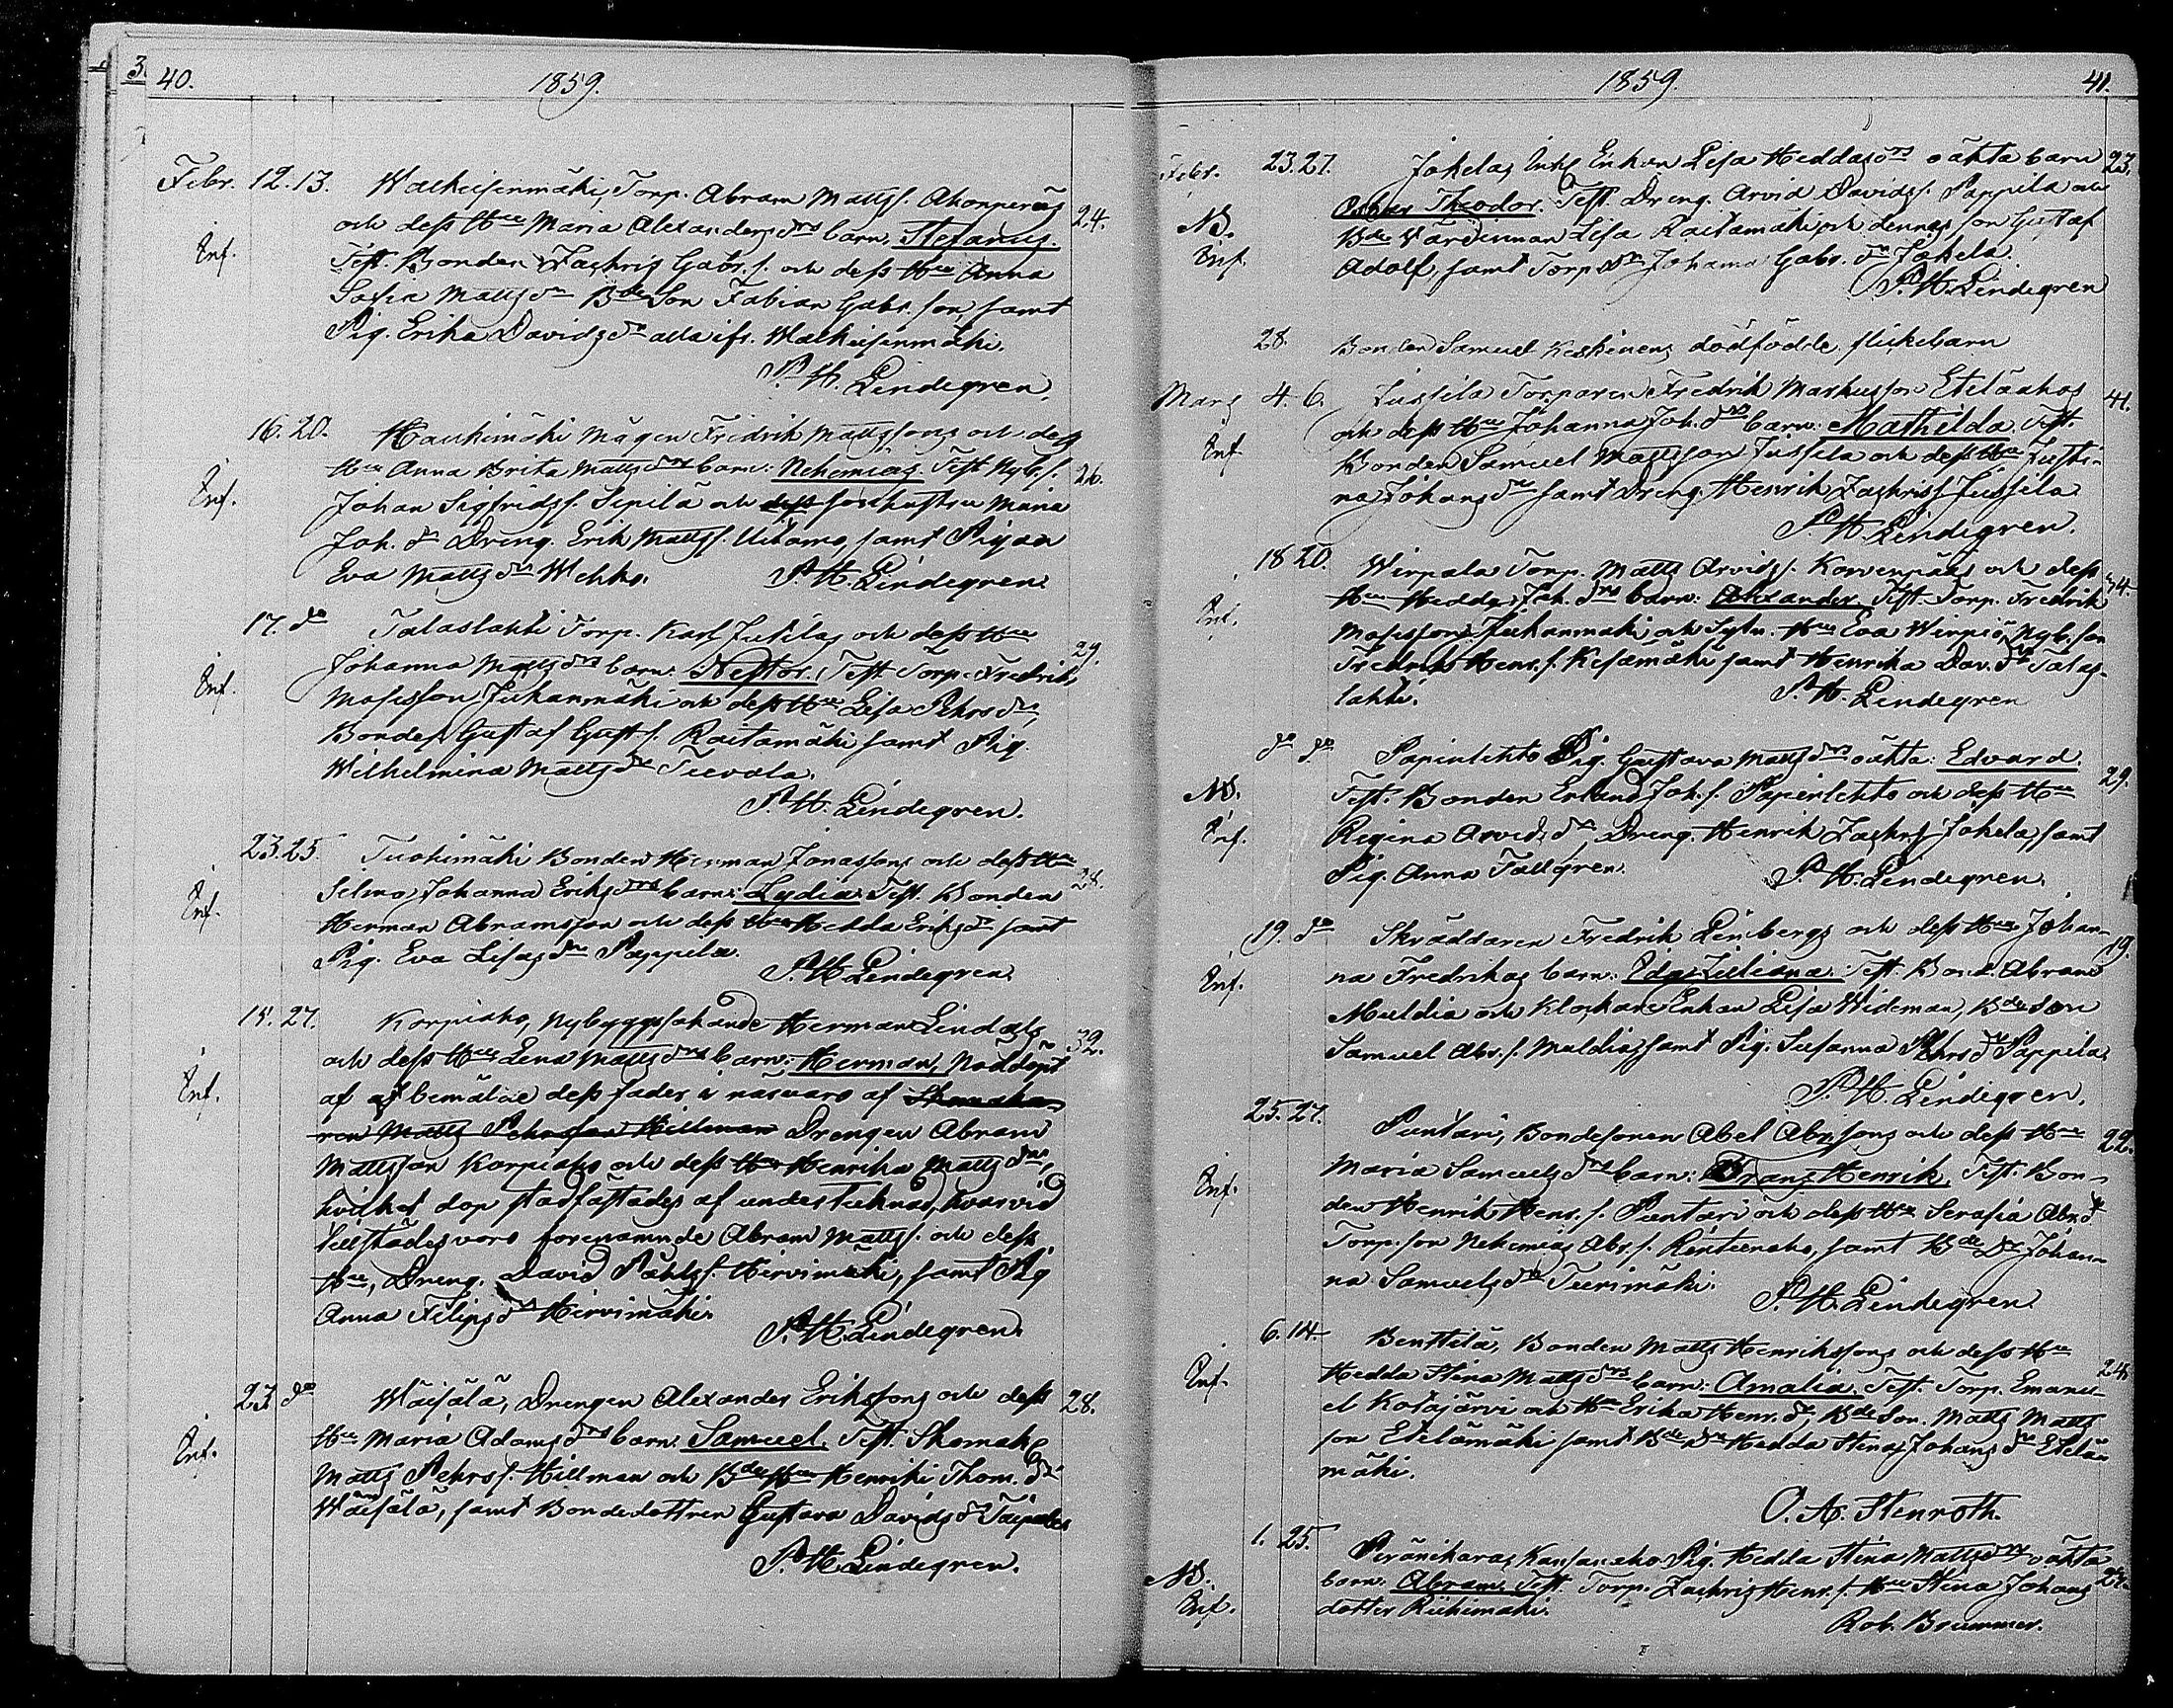 40. 1859.
Febr. 12. 13. Walkeisenmäki, Torp. Abram Mattss. Ahonperäs
och dess Hu Maria Alexandersdrs barn Stefanus. 24.
Inf. Test. Bonden Zachris Gabr. s. och dess Hu Anna
Sofia Mattsdr Bde Son Fabian Gabr. son, samt
Pig. Erika Davidsdr alla ifr. Walkeisenmäki.
P. H. Lindegren.
16. 20. Haukimäki Mågen Fredrik Mattssons och dess
Hu Anna Brita Mattsdrs barn: Nehemias Test Nyb. s. 26.
Inf. Johan Sigfridss. Sipilä och dess förehustru Maria
Joh. dr Dreng. Erik Mattss. Uitamo, samt Pigan
Eva Mattsdr Wehka. P. H. Lindegren.
17. do Talaslahti Torp. Karl Jukilas och dess Hu
Johanna Mattsdrs barn: Nestor. Test Torp. Fredrik 29.
Inf. Mosisson Juhanmäki och dess Hu Lisa Pehrsdr,
Bondes. Gustaf Gust. s. Raitamäki samt Pig.
Wilhelmina Mattsdr Teevala.
P. H. Lindegren.
23. 25. Tuohimäki Bonden Herman Jonassons och dess Hu
Selma Johanna Eriksdrs barn: Lydia Test. Bonden 28.
Inf. Herman Abramsson och dess Hu Hedda Eriksdr samt
Pig. Eva Lisasdr Pappila.
P. H. Lindegren.
15. 27. Korpiaho, Nybyggssökande Herman Lindals
och dess Hu Lena Mattsdrs barn: Herman, Nöddöpt 32.
Inf. af bemälde dess fader i närvaro af Skomaka-
ren Matts Pehrsson Hillman Drengen Abram
Mattsson Korpiaho och dess Hu Henrika Mattsdr,
hvilket dop stadfästades af undertecknad, hvarvid
tillstädes voro förenämnde Abram Mattss. och dess
Hu, Dreng. David Påhlss. Hirvimäki, samt Pig
Anna Filipsdr Hirvimäki.
P. H. Lindegren.
23 do Wäisälä, Drengen Alexander Erikssons och dess 28.
Hu Maria Adamsdrs barn Samuel. Test. Skomak
Inf. Matts Pehrs s. Hillman och Bde Hu Henriki Thom. dr
Wäisälä, samt Bondedottren Gustava Davidsdr Taipale
P. H. Lindegren.
1859. 41.
Febr. 23. 27. Jokelas Enkan Lisa Heddasdrs oäkta barn 23.
Oskar Theodor. Test. Dreng. Arvid Davidss. Pappila och
NB. Bde Värdinnan Lisa Raitamäki och dennes son Gustaf
Inf. Adolf, samt Torp. dr Johanna Gabr. dr Jokela.
P. H. Lindegren
28. Bonden Samuel Keskinens dödfödde flickebarn
Mars 4. 6. Jussila Torparen Fredrik Markusson Eteläahos 41.
och dess Hu Johanna Joh. drs barn: Mathilda. Test.
Inf. Bonden Samuel Mattsson Jussila och dess Hu Justi-
na Johansdr samt Dreng. Henrik Zachriss. Jussila
P. H. Lindegren.
18 20. Wirpala Torp. Matts Arvidss. Korvenpääs och dess 34.
Hu Hedda Joh. drs barn: Alexander. Test. Torp. Fredrik
Inf. Mosisson Juhanmäki och Sytn. Hu Eva Wirpiö, Nyb. son
Fredrik Henr. s. Kesämäki samt Henrika Dav. dr Talas-
lahti. P. H. Lindegren
do do Papinlehto Pig. Gustava Mattsdrs oäkta: Edvard. 29.
NB. Test. Bonden Erland Joh. s. Papinlehto och dess Hu
Inf. Regina Arvidsdr Dreng. Henrik Zachrs Jokela, samt
Pig. Anna Tallgren. P. H. Lindegren.
19. do Skräddaren Fredrik Linbergs och dess Hu Johan- 19.
na Fredrikas barn: Ida Juliana. Test. Bond. Abram
Inf. Muldia och Klockare Enkan Lisa Wideman, Bde Son
Samuel Abr. s. Muldia, samt Pig. Susanna Pehrsdr Pappila
P. H. Lindegren.
25. 27. Puntari, Bondesonen Abel Abrssons och dess Hu 22.
Maria Samuelsdrs barn: Frans Henrik, Test. Bon-
Inf. den Henrik Henr. s. Puntari och dess Hu Serafia Abr. dr
Torp. son Nehemias Abr. s. Rintteenaho, samt Bde Dr Johan-
na Samuelsdr Teerimäki.
P. H. Lindegren.
6. 14. Benttilä, Bonden Matts Henrikssons och dess Hu
Hedda Stina Mattsdrs barn: Amalia. Test. Torp. Emanu- 24.
Inf. el Kotajärvi och Hu Erika Henr. dr, Bde Son. Matts Matts
son Etelämäki samt Bde Dr Hedda Stina Johansdr Etelä-
mäki.
O. A. Stenroth.
1. 25. Peränikaras Kansaneho Pig. Hedda Stina Mattsdrs oäkta
NB. barn: Abram. Test. Torp. Zachris Henr. s. Hu Stina Johans 27.
Inf. dotter Riihimäki.
Rob. Brummer.